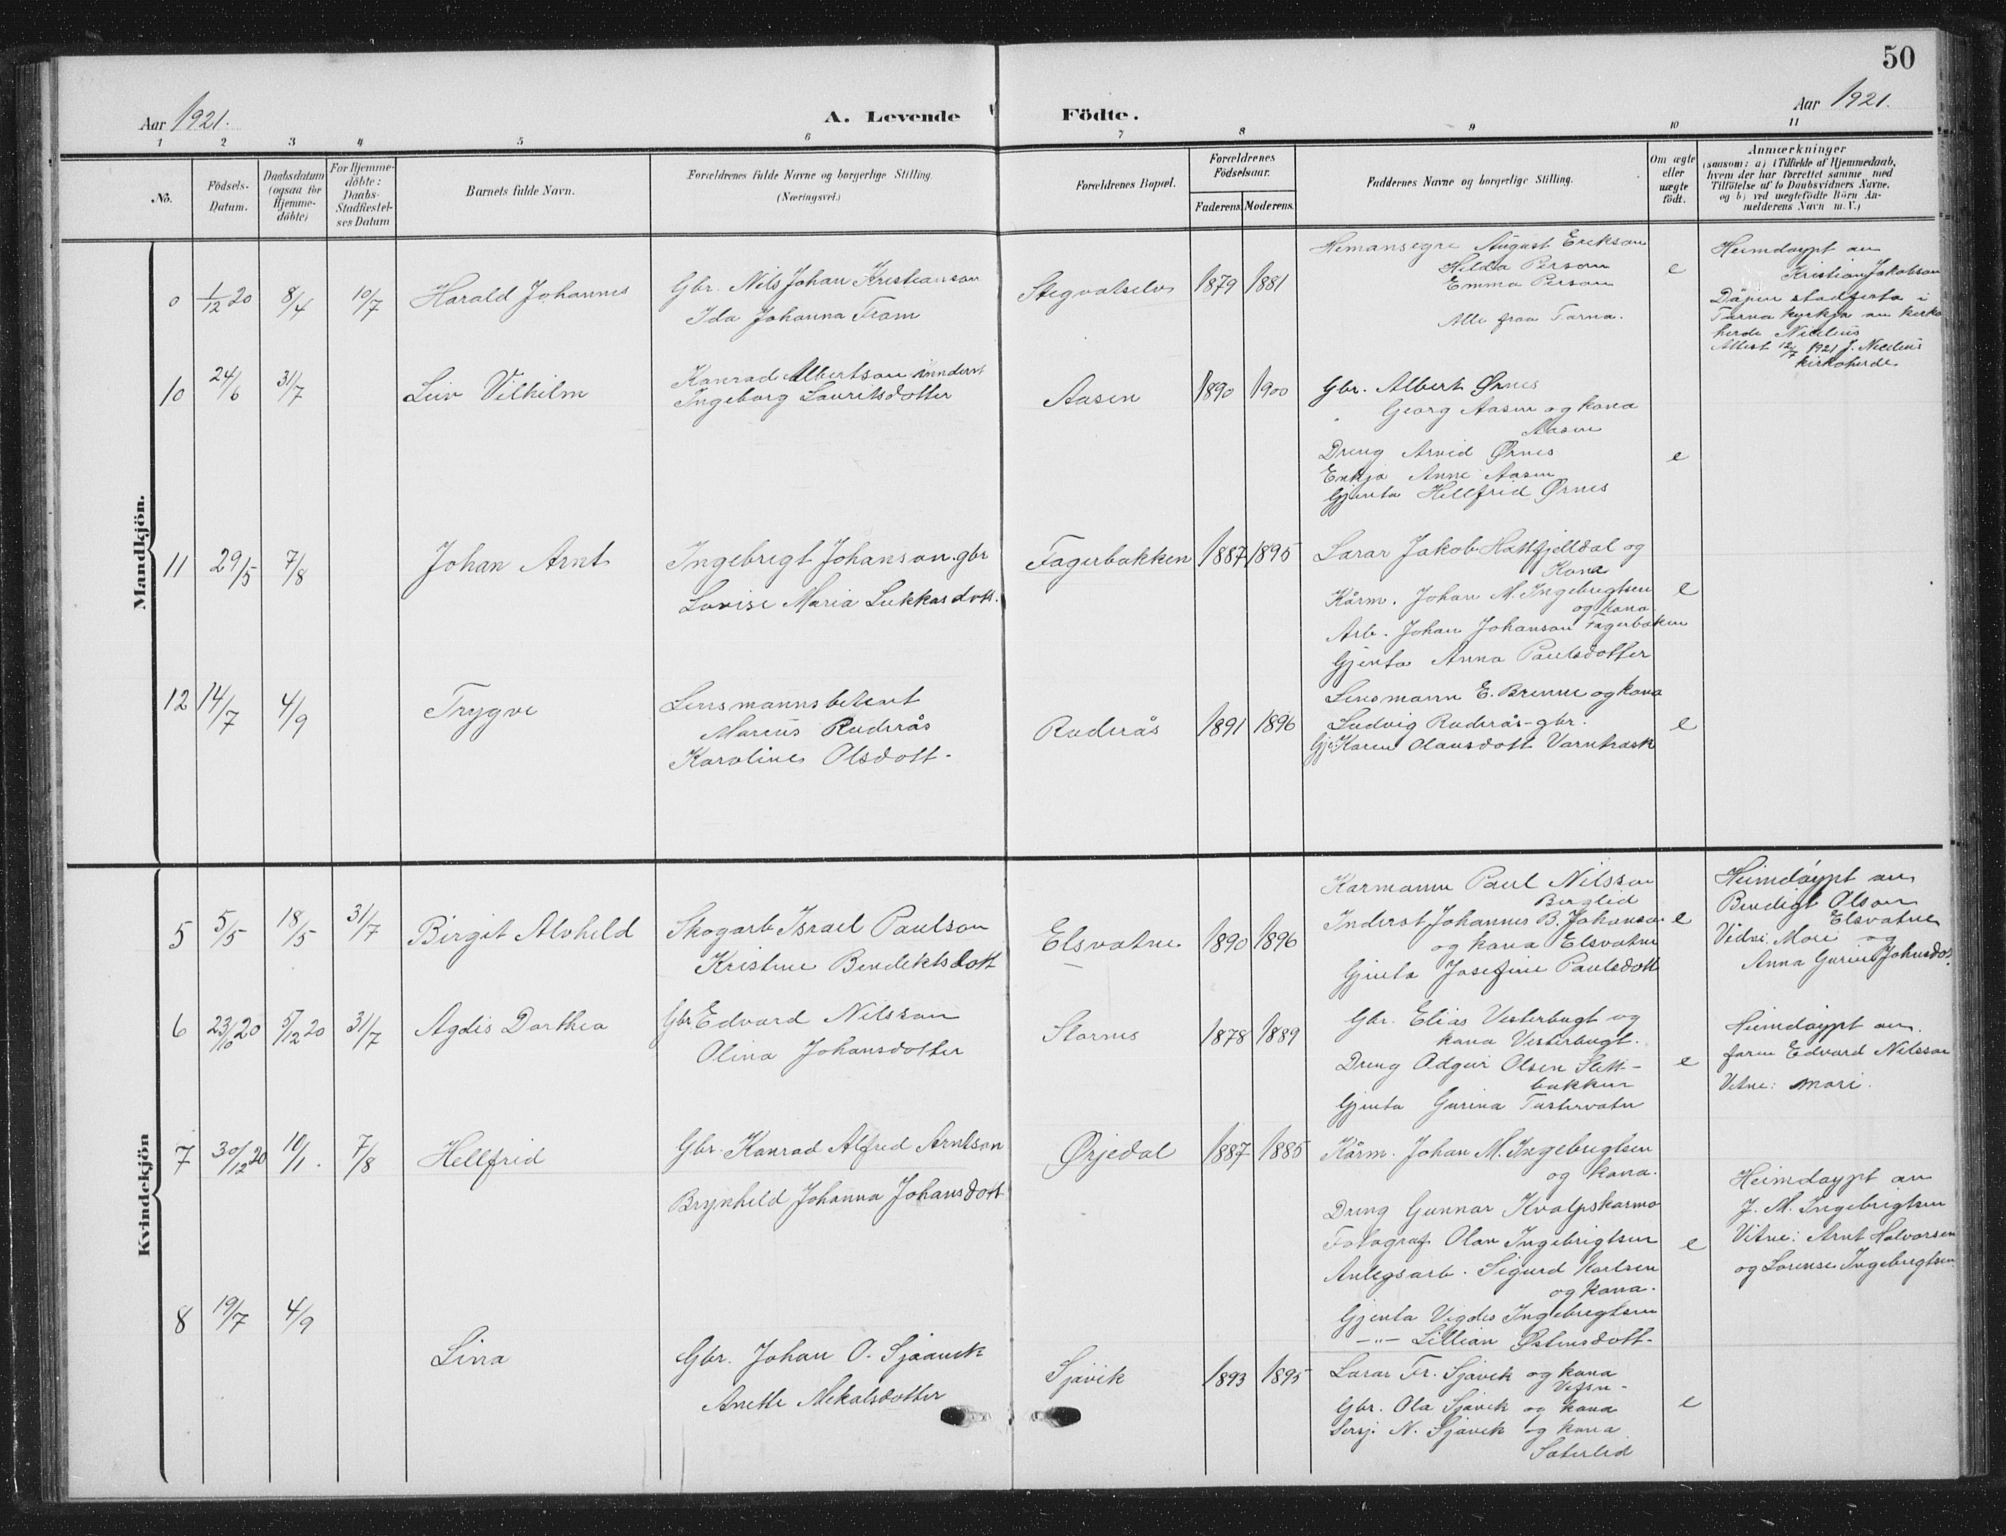 50
Aar 1921.
A. Levende Födte.
Aar 1921.
1 2 3 4 5 6 7 8 9 10 11
No.
Födsels-Datum.
Daabsdatum (ogsaa for Hjemme-döbte)
For Hjemme-döbte: Daabs-Stadfæstel-ses Datum
Barnets fulde Navn.
Forældrenes fulde Navne og borgerlige Stilling.
(Næringsvei.)
Forældrenes Bopæl.
Forældrenes Födselsaar.
Faderens. Moderens.
Faddernes Navne og borgerlige Stilling.
Om ægte eller uægte födt.
Anmærkninger
(saasom: a) i Tilfælde af Hjemmedaab,
hvem der har forrettet samme med
Tilföielse af to Daabsvidners Navne,
og b) ved uægtefödte Börn An-
melderens Navn m. V.)
Mandkjön.
0 1/12 20 8/4 10/7 Harald Johannes
Gbr. Nils Johan Kristianson
Ida Johanna Fram
Stegvatselv 1879 1881
Hemansegre August Erikson
Hilda Person
Emma Person
Alle fraa Tarna.
e
Heimdøypt av
Kristian Jakobson
Dåpen stadfesta i
Tarna kyrkja av kirko
herde Nicelius
Attest 12/7 1921 J. Nicelius
kirkoherde
10 24/6 31/7 Leiv Vilhelm
Konrad Albertson innderst
Ingeborg Lauritsdotter
Aasen 1890 1900
Gbr. Albert Ørnes
Georg Aasen og kona
Aasen
Dreng Arvid Ørnes
Enkja Anne Aasen
Gjenta Hellfrid Ørnes
e
11 29/5 7/8 Johan Arnt
Ingebrigt Johanson. gbr
Lovise Maria Lukkasdott.
Fagerbakken 1887 1895
Lærar Jakob Hattfjelldal og
Kona
Kårm. Johan M. Ingebrigtsen
og kona.
Arb. Johan Johanson Fagerbaken
Gjenta Anna Paulsdotter
e
12 14/7 4/9 Trygve
Lensmannsbetent
Marius Ruderås
Karoline Olsdott.
Ruderås 1891 1896
Lensmann E. Brenne og kona
Ludvig Ruderås - gbr.
Gje. Karen Olausdott Varntresk
e
Kvindekjön
5 5/5 18/5 31/7 Birgit Alvheld
Skogarb Israel Paulson
Kristine Bendiktsdott
Elsvatne 1890 1896
Karmann Paul Nilsson
Berglid
Inderst Johannes B. Johanson
og kona Elsvatne
Gjenta Josefine Paulsdott
e
Heimdøypt av
Bendigt Olson
Elsvatne
Vidne: Mori og
Anna Gurine Johnsdot.
6 23/10 20 5/12 20 31/7 Agdis Dorthea
Gbr Edvard Nilsson
Olina Johansdotter
Stornes 1878 1889
Gbr. Elias Vesterbugt og
kona Vesterbugt.
Dreng Odgeir Olsen Slett-
bakken
Gjenta Gurina Tustervatn
e
Heimdøypt av
faren Edvard Nilsson
Vitne: mori.
7 30/12 20 10/1. 7/8 Hellfrid
Gbr. Konrad Alfred Arntson
Brynheld Johanna Johansdott
Ørjedal 1887 1885
Kårm. Johan M. Ingebrigtsen
og kona.
Dreng Gunnar Kvalpskarmo
Fotograf Olav Ingebrigtsen
Anlegsarb. Sigurd Karlsen
og kona.
Gjenta Vigdis Ingebrigtsen
-"- Lillian Østensdott.
e
Heimdøypt av
J. M. Ingebrigtsen
Vitne: Arnt Halvorsen
og Lorense Ingebrigtsen
8 19/7 4/9 Lina
Gbr. Johan O. Sjåavik
Anette Mekalsdotter
Sjåvik 1893 1895
Lærar Fr. Sjåvik og kona
Vefsn -
Gbr. Ola Sjåvik og kona
Sersj. N. Sjåvik og kona
Sæterlid
e